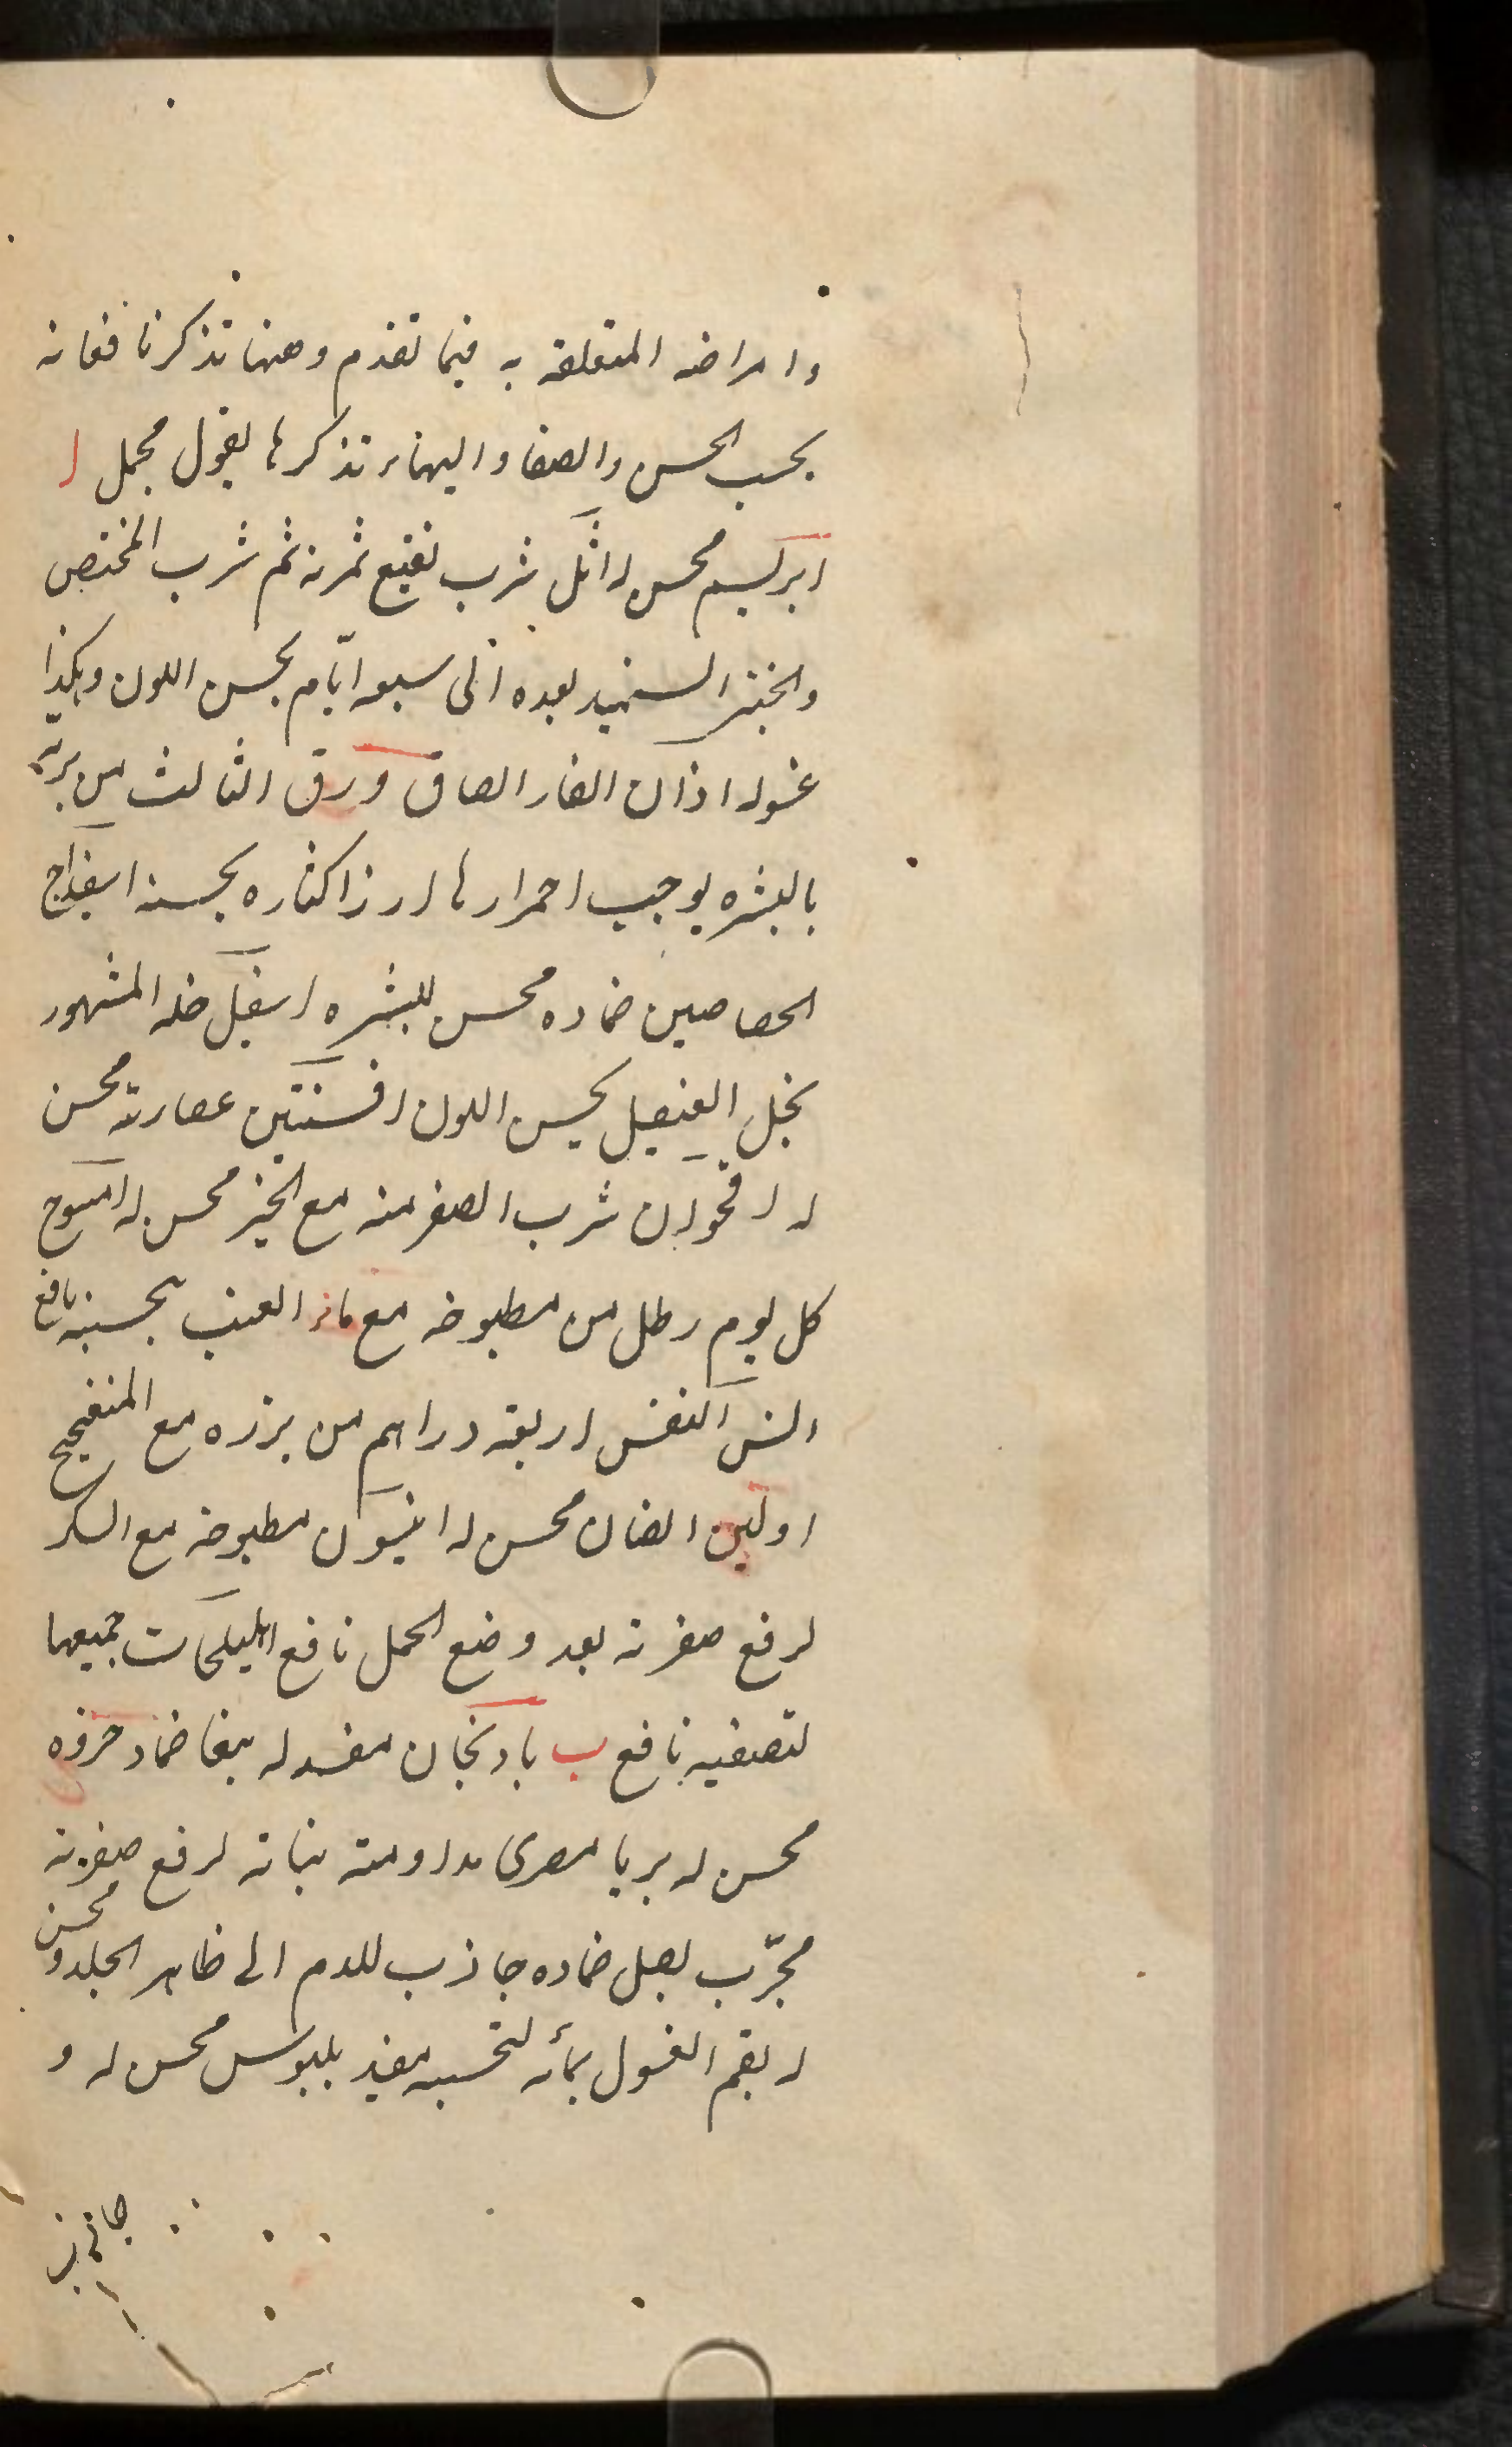 وامراضه المتعلقه به فیما تقدم وههنا نذکر نافعاته
بحسب الحسن والصفا والبهاء نذکرها بقول مجمل ا
ابریسم محسن له اثل شرب نقیع ثمرته ثم شرب المختص
والخبز السمید بعده الی سبعه ایّام یحسن اللون وهکذا
غسوله اذان الفار الصاق ورق الثالث من بریّه
بالبشره یوجب احمرارها ارز اکثاره یحسنه اسفیداج
الجصاصین ضماده محسن للبشره اسقیل خله المشهور
بخل العنصل یحسن اللون افسنتین عصارته محسن
له اقحوان شرب الصفر منه مع الخبز محسن له امسوح
کل یوم رطل من مطبوخه مع ماء العنب لتحسینه نافع
النس النفس اربعة دراهم من بزره مع المنفجیج
اولبن الضان محسن له انیسون مطبوخه مع السکر
لرفع صفرته بعد وضع الحمل نافع اهلیلجات جمیعها
لتصفیه نافع ب بادنجان مفسد له ببغا ضماد خروه
محسن له بربا مصری مداومة نباته لرفع صفرته
مجرّب بصل ضماده جاذب للدم الی ظاهر الجلد و محسن
له بقم الغسول بمائه لتحسینه مفید بلبوس محسن له و
جاذب